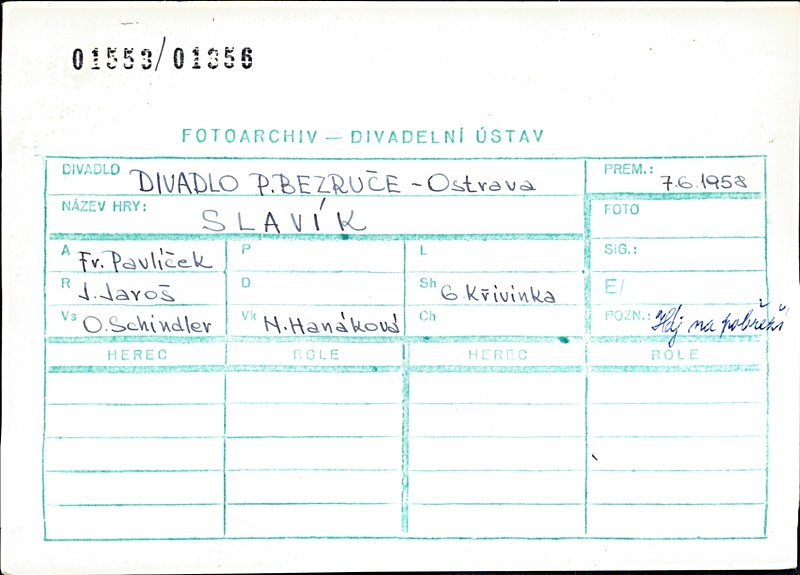 01553/01356
FOTOARCHIV — DIVADELNÍ ÚSTAV
DIVADLO DIVADLO P. BEZRUČE - Ostrava PREM.: 7.6.1958
NÁZEV HRY: SLAVÍK FOTO
A Fr. Pavlíček P L SIG.:
R J. Jaroš D Sh G. Křivinka E/
Vs O. Schindler Vk N. Hanáková Ch POZN.: Háj na pobřeží
HEREC ROLE HEREC ROLE